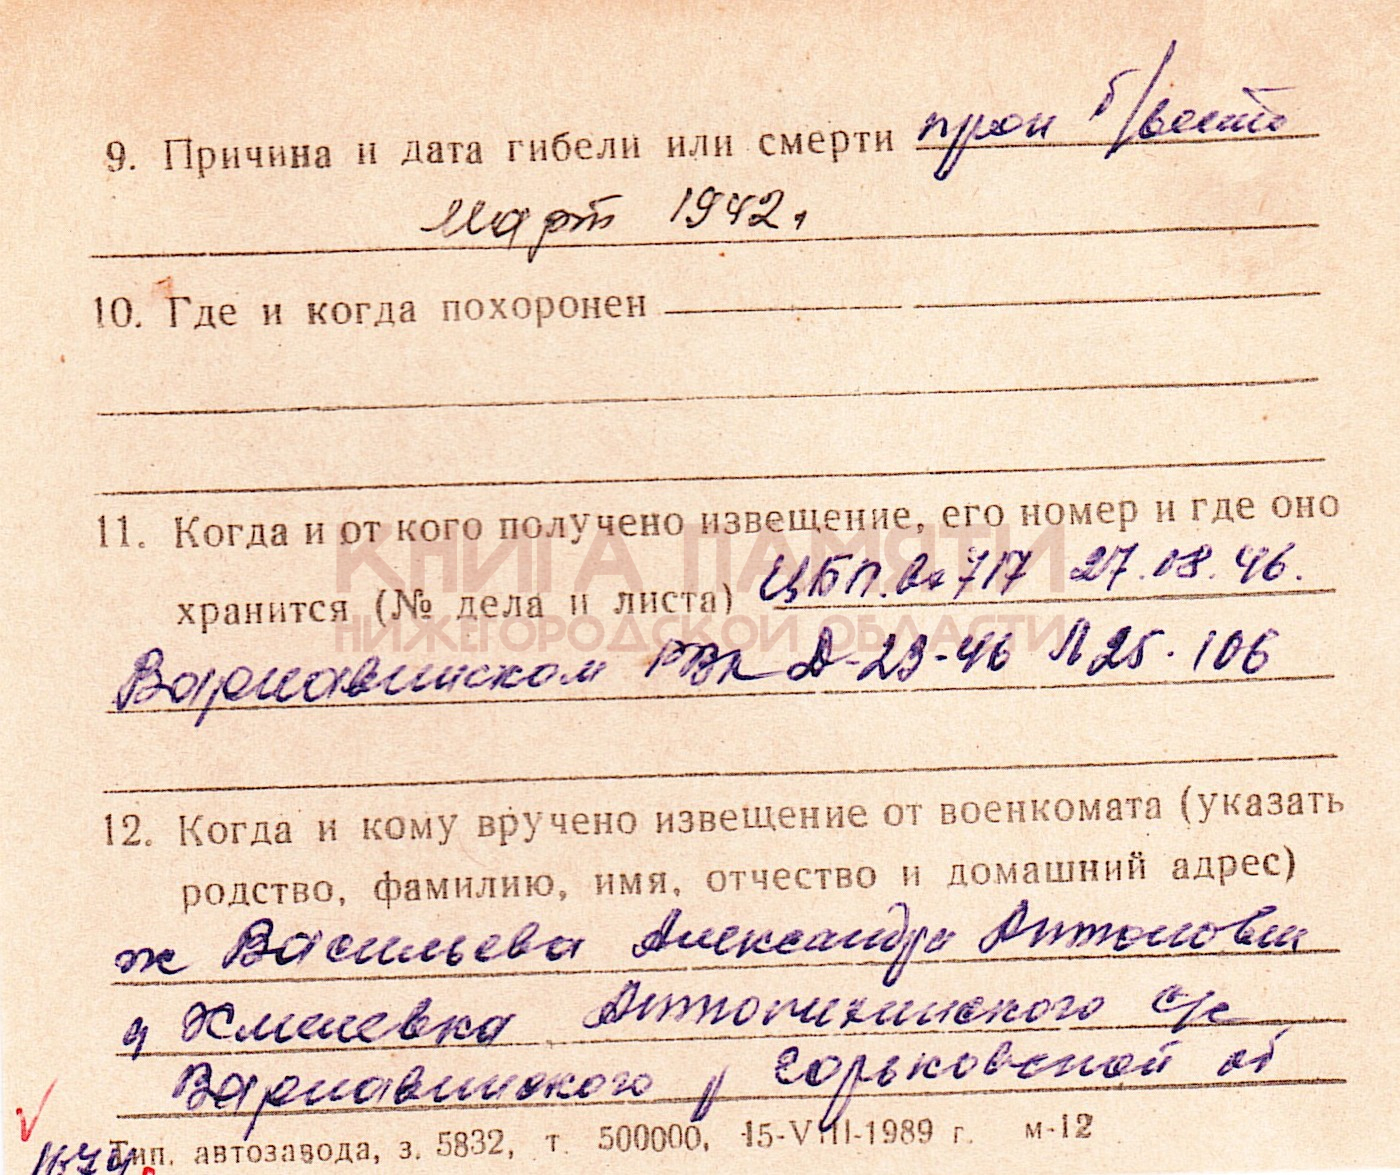 9. Причина и дата гибели или смерти проп б/вести
Март 1942 г
10. Где и когда похоронен
11. Когда и от кого получено извещение, его номер и где оно
КНИГА ПАМЯТИ
хранится (№ дела и листа) ЦБП. Вх 717 27.08.46.
НИЖЕГОРОДСКОЙ ОБЛАСТИ
Варнавинском РВК Д-23-46 Л 25. 106
12. Когда и кому вручено извещение от военкомата (указать
родство, фамилию, имя, отчество и домашний адрес)
ж Васильева Александра Антоновна
д Хмелевка с/с
Варнавинского р Горьковской об
Тип. автозавода, з. 5832, т. 500000, 15-VIII-1989 г. м-12